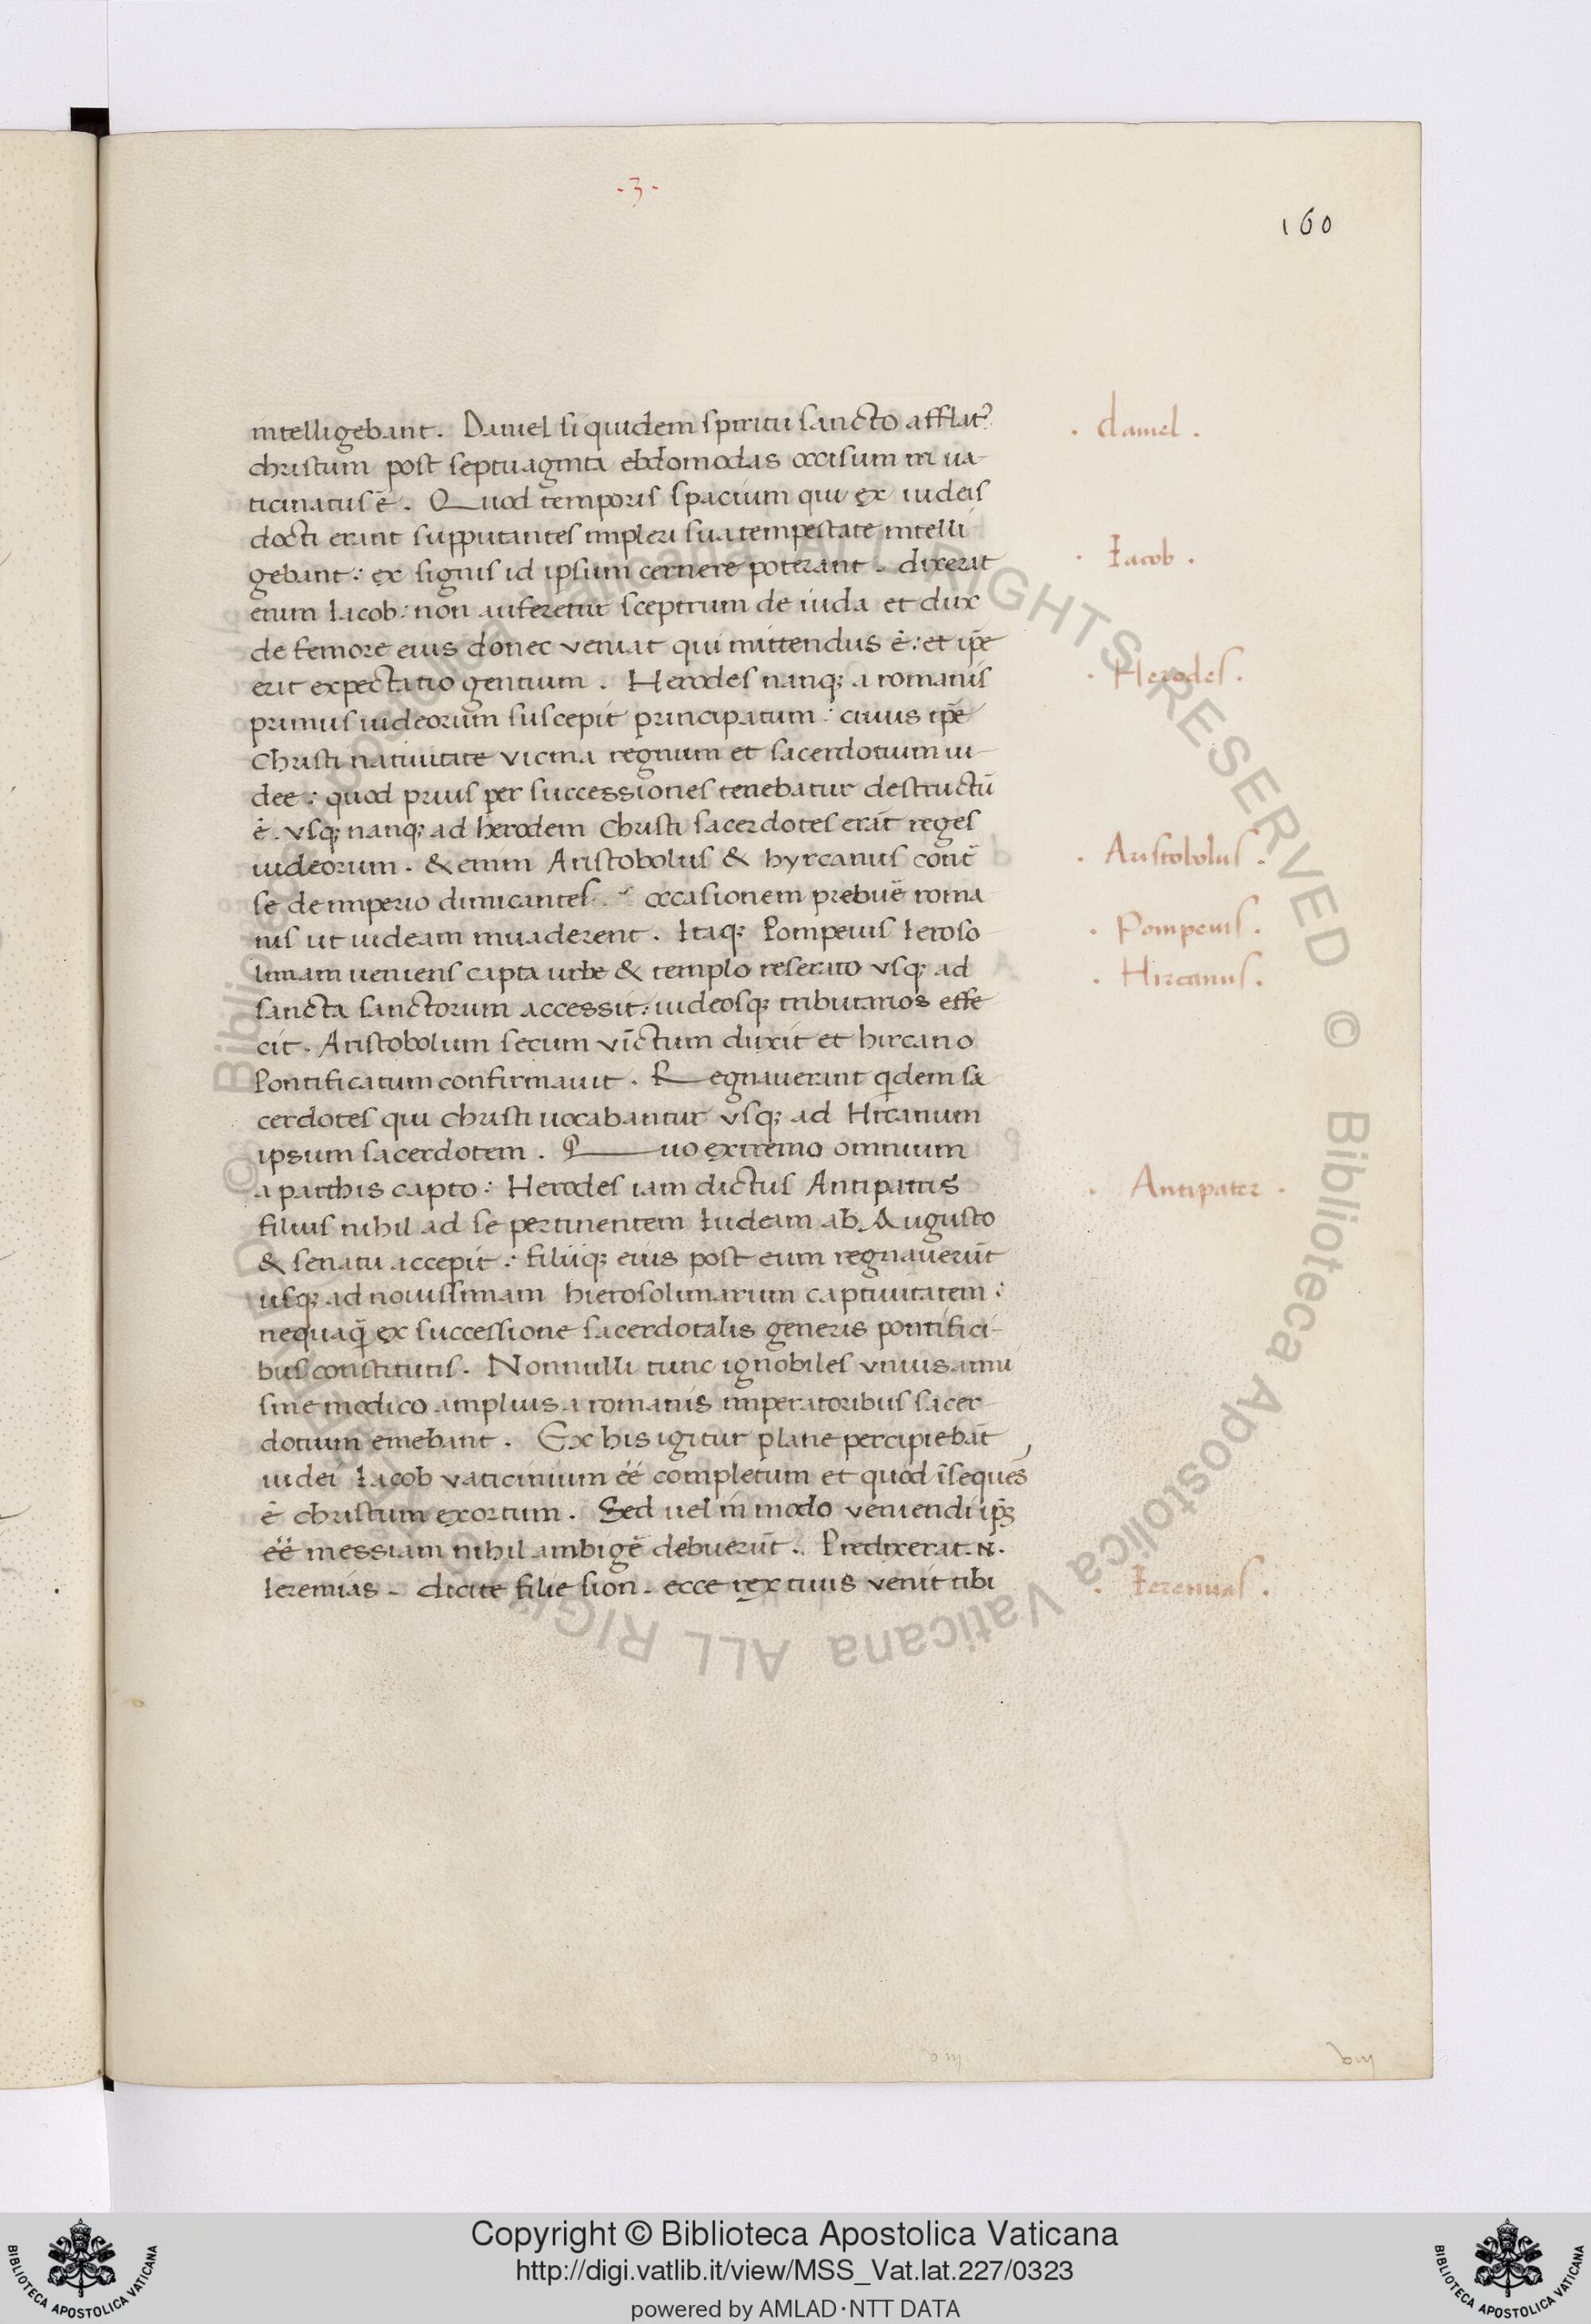 - 3 -
160
intelligebant. Daniel siquidem spiritu sancto afflatꝰ
christum post septuaginta ebdomodas occisum iri ua-
ticinatus ē. Quod temporis spacium qui ex iudeis
docti erant supputantes impleri sua tempestate intelli
gebant: ex signis id ipsum cernere poterant. dixerat
enim Iacob: non auferetur sceptrum de iuda et dux
de femore eius donec veniat qui mittendus ē: et ip̄e
erit expectatio gentium. Herodes nanq; a romanis
primus iudeorum suscepit principatum: cuius tp̄e
Christi natiuitate vicina regnum et sacerdotium iu-
dee: quod prius per successiones tenebatur destructū
ē. vsq; nanq; ad herodem Christi sacerdotes erāt reges
iudeorum. & enim Aristobolus & hyrcanus cont̄
se de imperio dimicantes occasionem prebuē roma
nis ut iudeam inuaderent. Itaq; Pompeius Ieroso
limam ueniens capta urbe & templo reserato vsq; ad
sancta sanctorum accessit: iudeosq; tributarios effe
cit. Aristobolum secum vīctum duxit et hircano
Pontificatum confirmauit. Regnauerunt qͥdem sa
cerdotes qui christi uocabantur vsq; ad Hircanum
ipsum sacerdotem. Quo extremo omnium
a parthis capto: Herodes iam dictus Antipatris
filius nihil ad se pertinentem Iudeam ab Augusto
& senatu accepit: filiiq; eius post eum regnauerūt
usq; ad nouissimam hierosolimarum captiuitatem:
nequaq̄ ex successione sacerdotalis generis pontifici-
bus constitutis. Nonnulli tunc ignobiles vnius anni
siue modico amplius a romanis imperatoribus sacer-
dotium emebant. Ex his igitur plane percipiebāt
iudei Iacob vaticinium ēē completum et quod īsequēs
ē christum exortum. Sed uel in modo veniendi ip̄ꝫ
ēē messiam nihil ambigē debuerūt. Predixerat .N.
Ieremias - dicite filie sion - ecce rex tuus venit tibi
. daniel .
. Iacob .
. Herodes .
. Aristobolus .
. Pompeius .
. Hircanus .
. Antipater .
. Ieremias .
b iij
b iij
© Biblioteca Apostolica Vaticana ALL RIGHTS RESERVED © Biblioteca Apostolica Vaticana ALL RIGHTS RESERVED
Copyright © Biblioteca Apostolica Vaticana
http://digi.vatlib.it/view/MSS_Vat.lat.227/0323
powered by AMLAD·NTT DATA
BIBLIOTECA APOSTOLICA VATICANA
BIBLIOTECA APOSTOLICA VATICANA